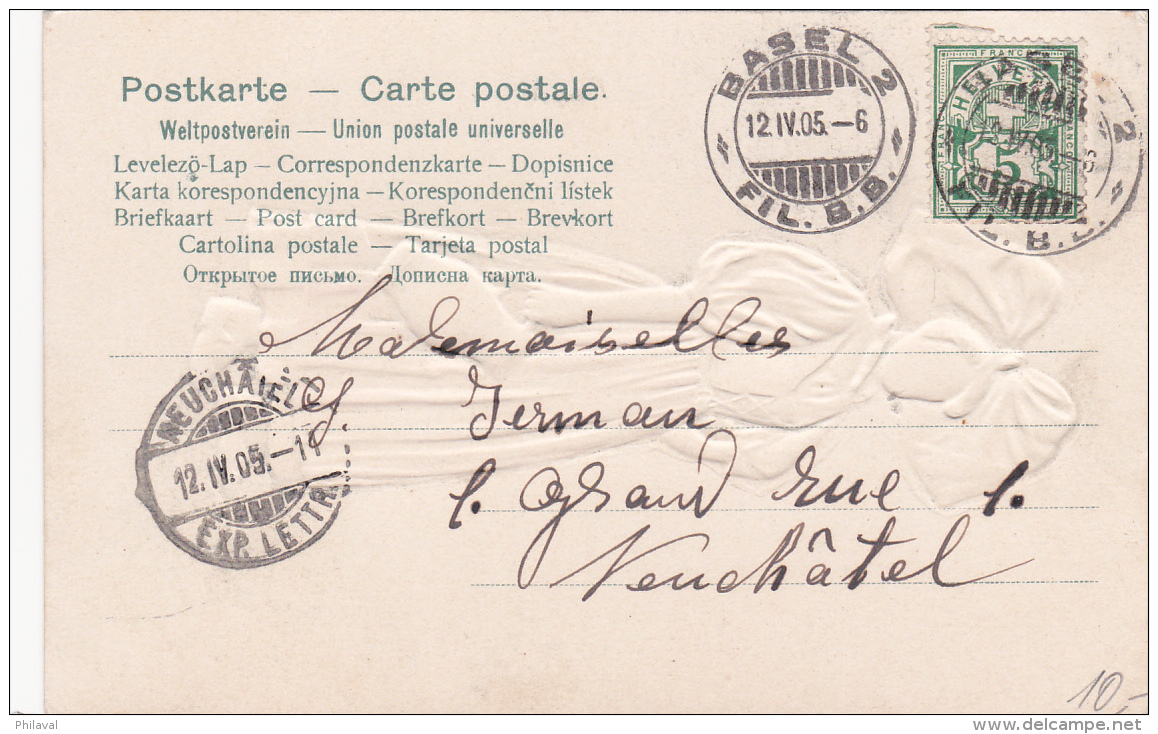 Postkarte — Carte postale.
Weltpostverein — Union postale universelle
Levelezö-Lap — Correspondenzkarte — Dopisnice
Karta korespondencyjna — Korespondenčni lístek
Briefkaart — Post card — Brefkort — Brevkort
Cartolina postale — Tarjeta postal
Открытое письмо. Дописна карта.
BASEL 2
12.IV.05.-6
FIL. B.B.
FRANCO
HELVETIA
5
Mademoiselles
J. German
Grand rue
Neuchâtel
NEUCHÂTEL
12.IV.05.-11
EXP. LETTR.
10,-
Philaval
www.delcampe.net